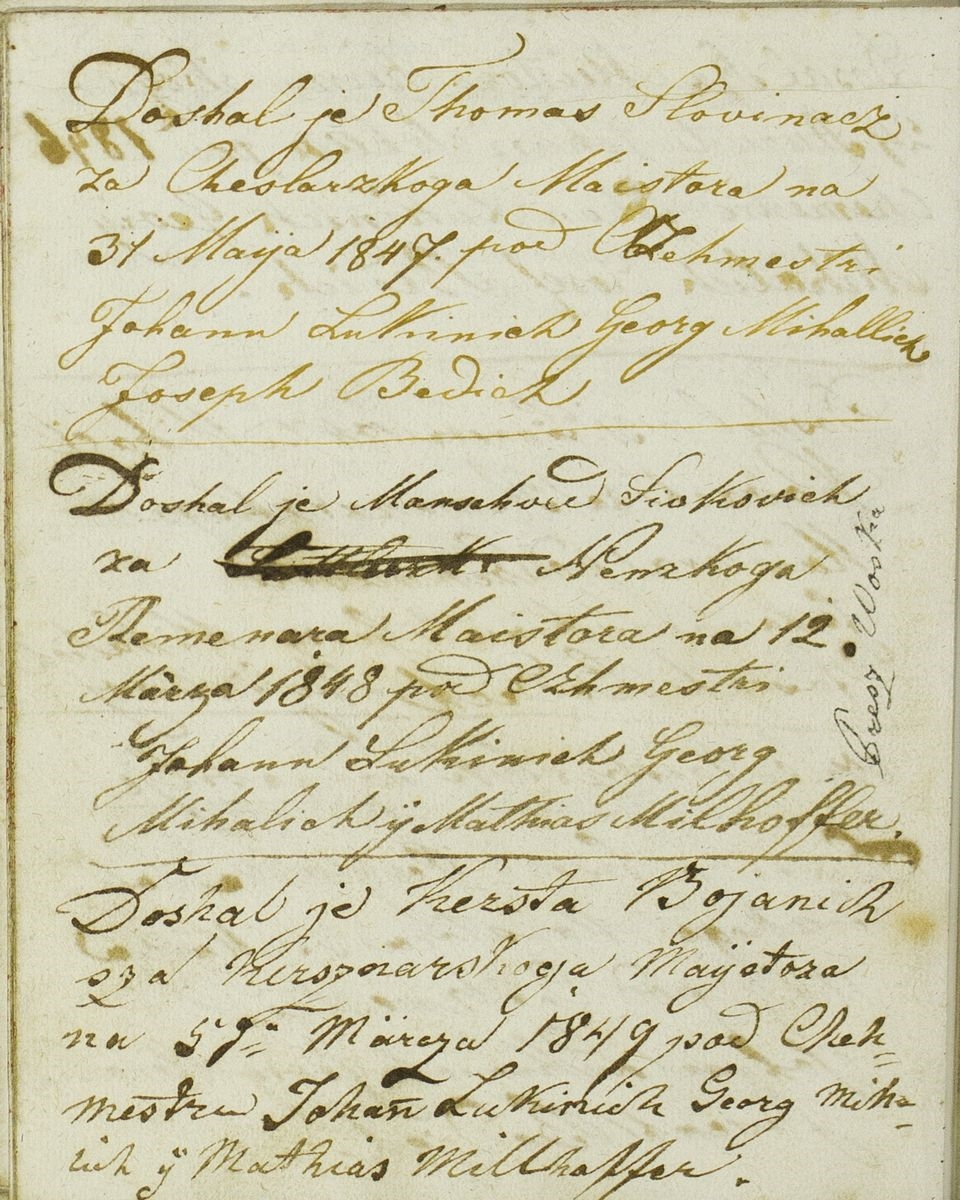 Doshal je Thomas Slovinacz
za Cheslarzkoga Maistora na
31 Maija 1847. pod Czehmestri
Johann Lukinich Georg Mihallich
Joseph Bedich
Doshal je Manschved Sirkovich
za Nemzkoga
Remenara Maistora na 12.
Märza 1848 pod Czhmestri
Johann Lukinich Georg
Mihalich ÿ Mathias Milhoffer.
Presz Woska
Doshal je Kersta Bojanich
sza Kirsznarskoga Maÿstora
na Märcza 1849 pod Cheh-
mestru Johan̄ Lukinich Georg Mih-
lich ÿ Mathias Millhoffer.